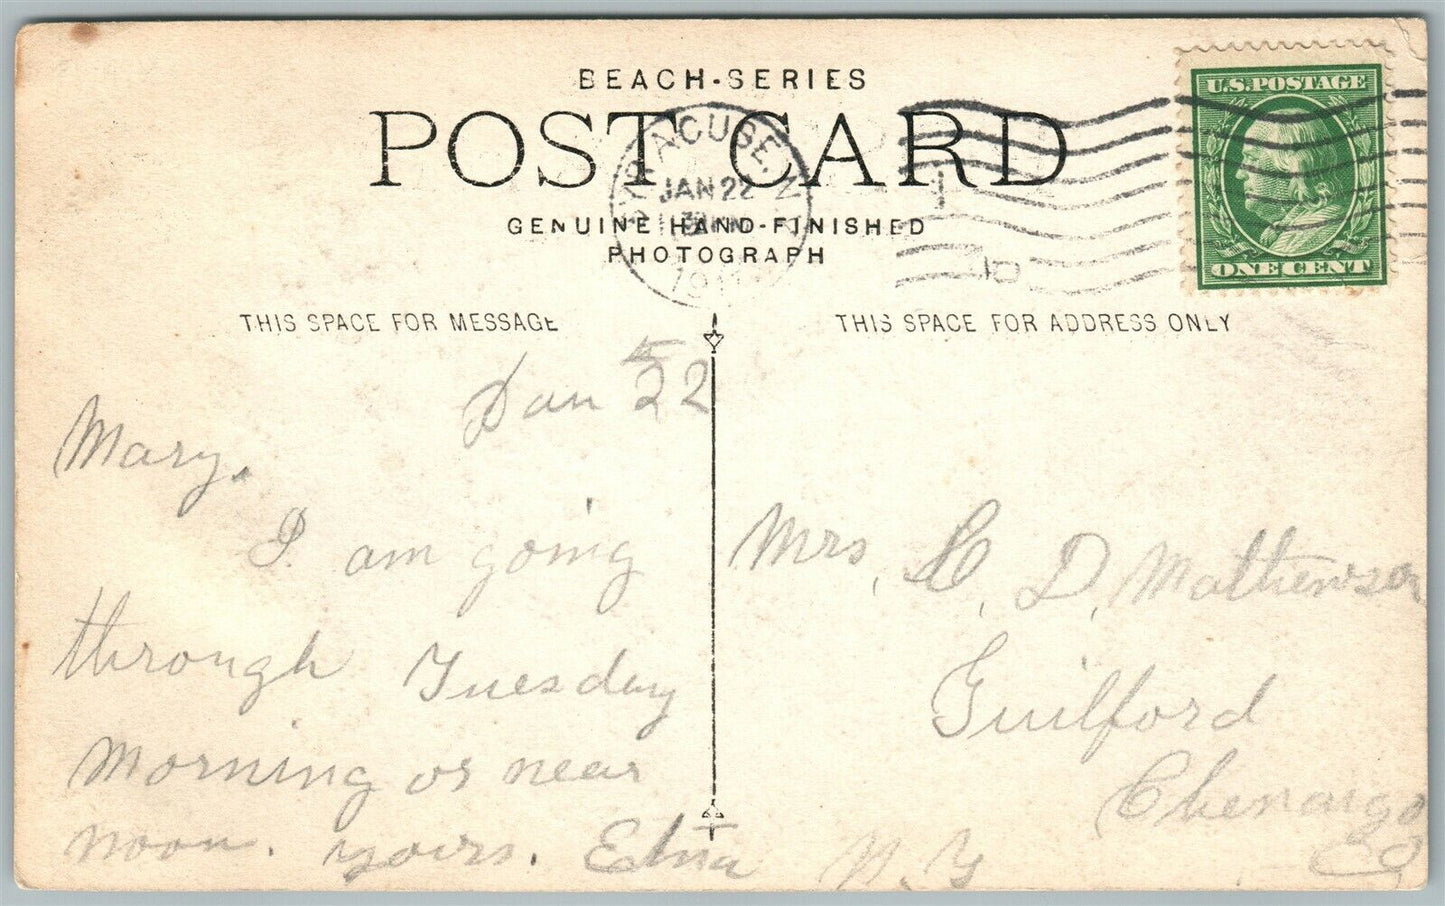 BEACH-SERIES
POST CARD
GENUINE HAND-FINISHED
PHOTOGRAPH
SYRACUSE, N.
JAN 22
1911
U.S. POSTAGE
ONE CENT
THIS SPACE FOR MESSAGE
THIS SPACE FOR ADDRESS ONLY
Jan 22
Mary.
I am going
through Tuesday
morning or near
noon. yours. Edna
Mrs, L. D. Mathewson
Guilford
Chenango
Co
N. Y